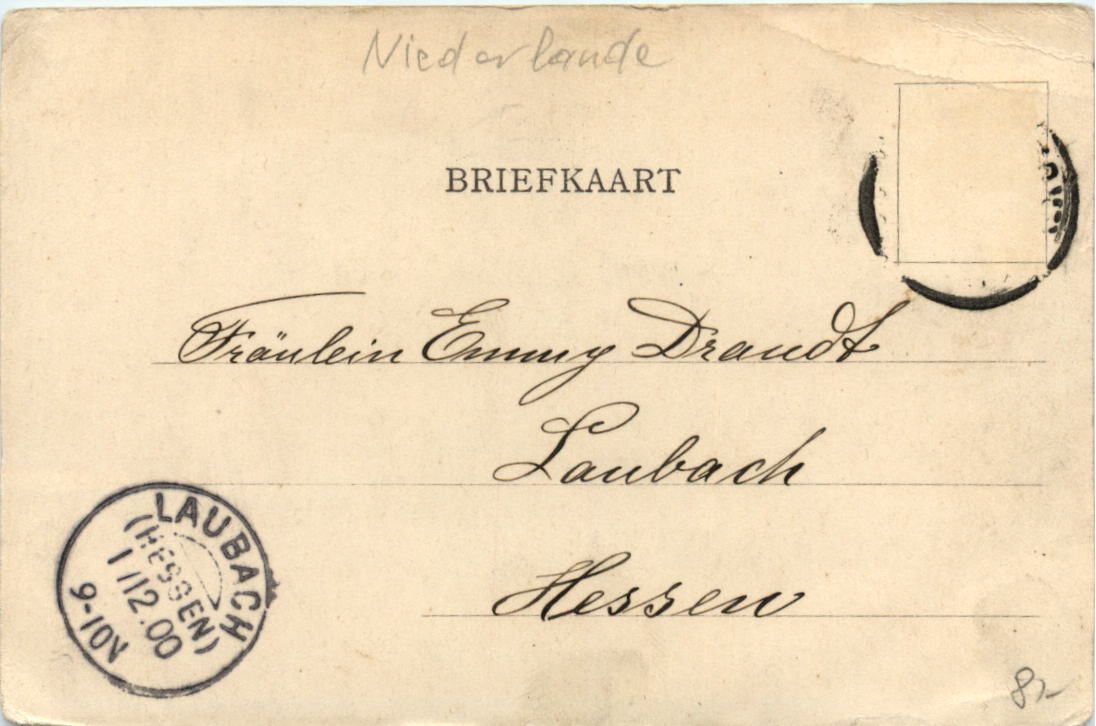 Niederlande
BRIEFKAART
Fräulein Emmy Drandt
Laubach
Hessen
LAUBACH
(HESSEN)
1/12.00
9-10V
8,-